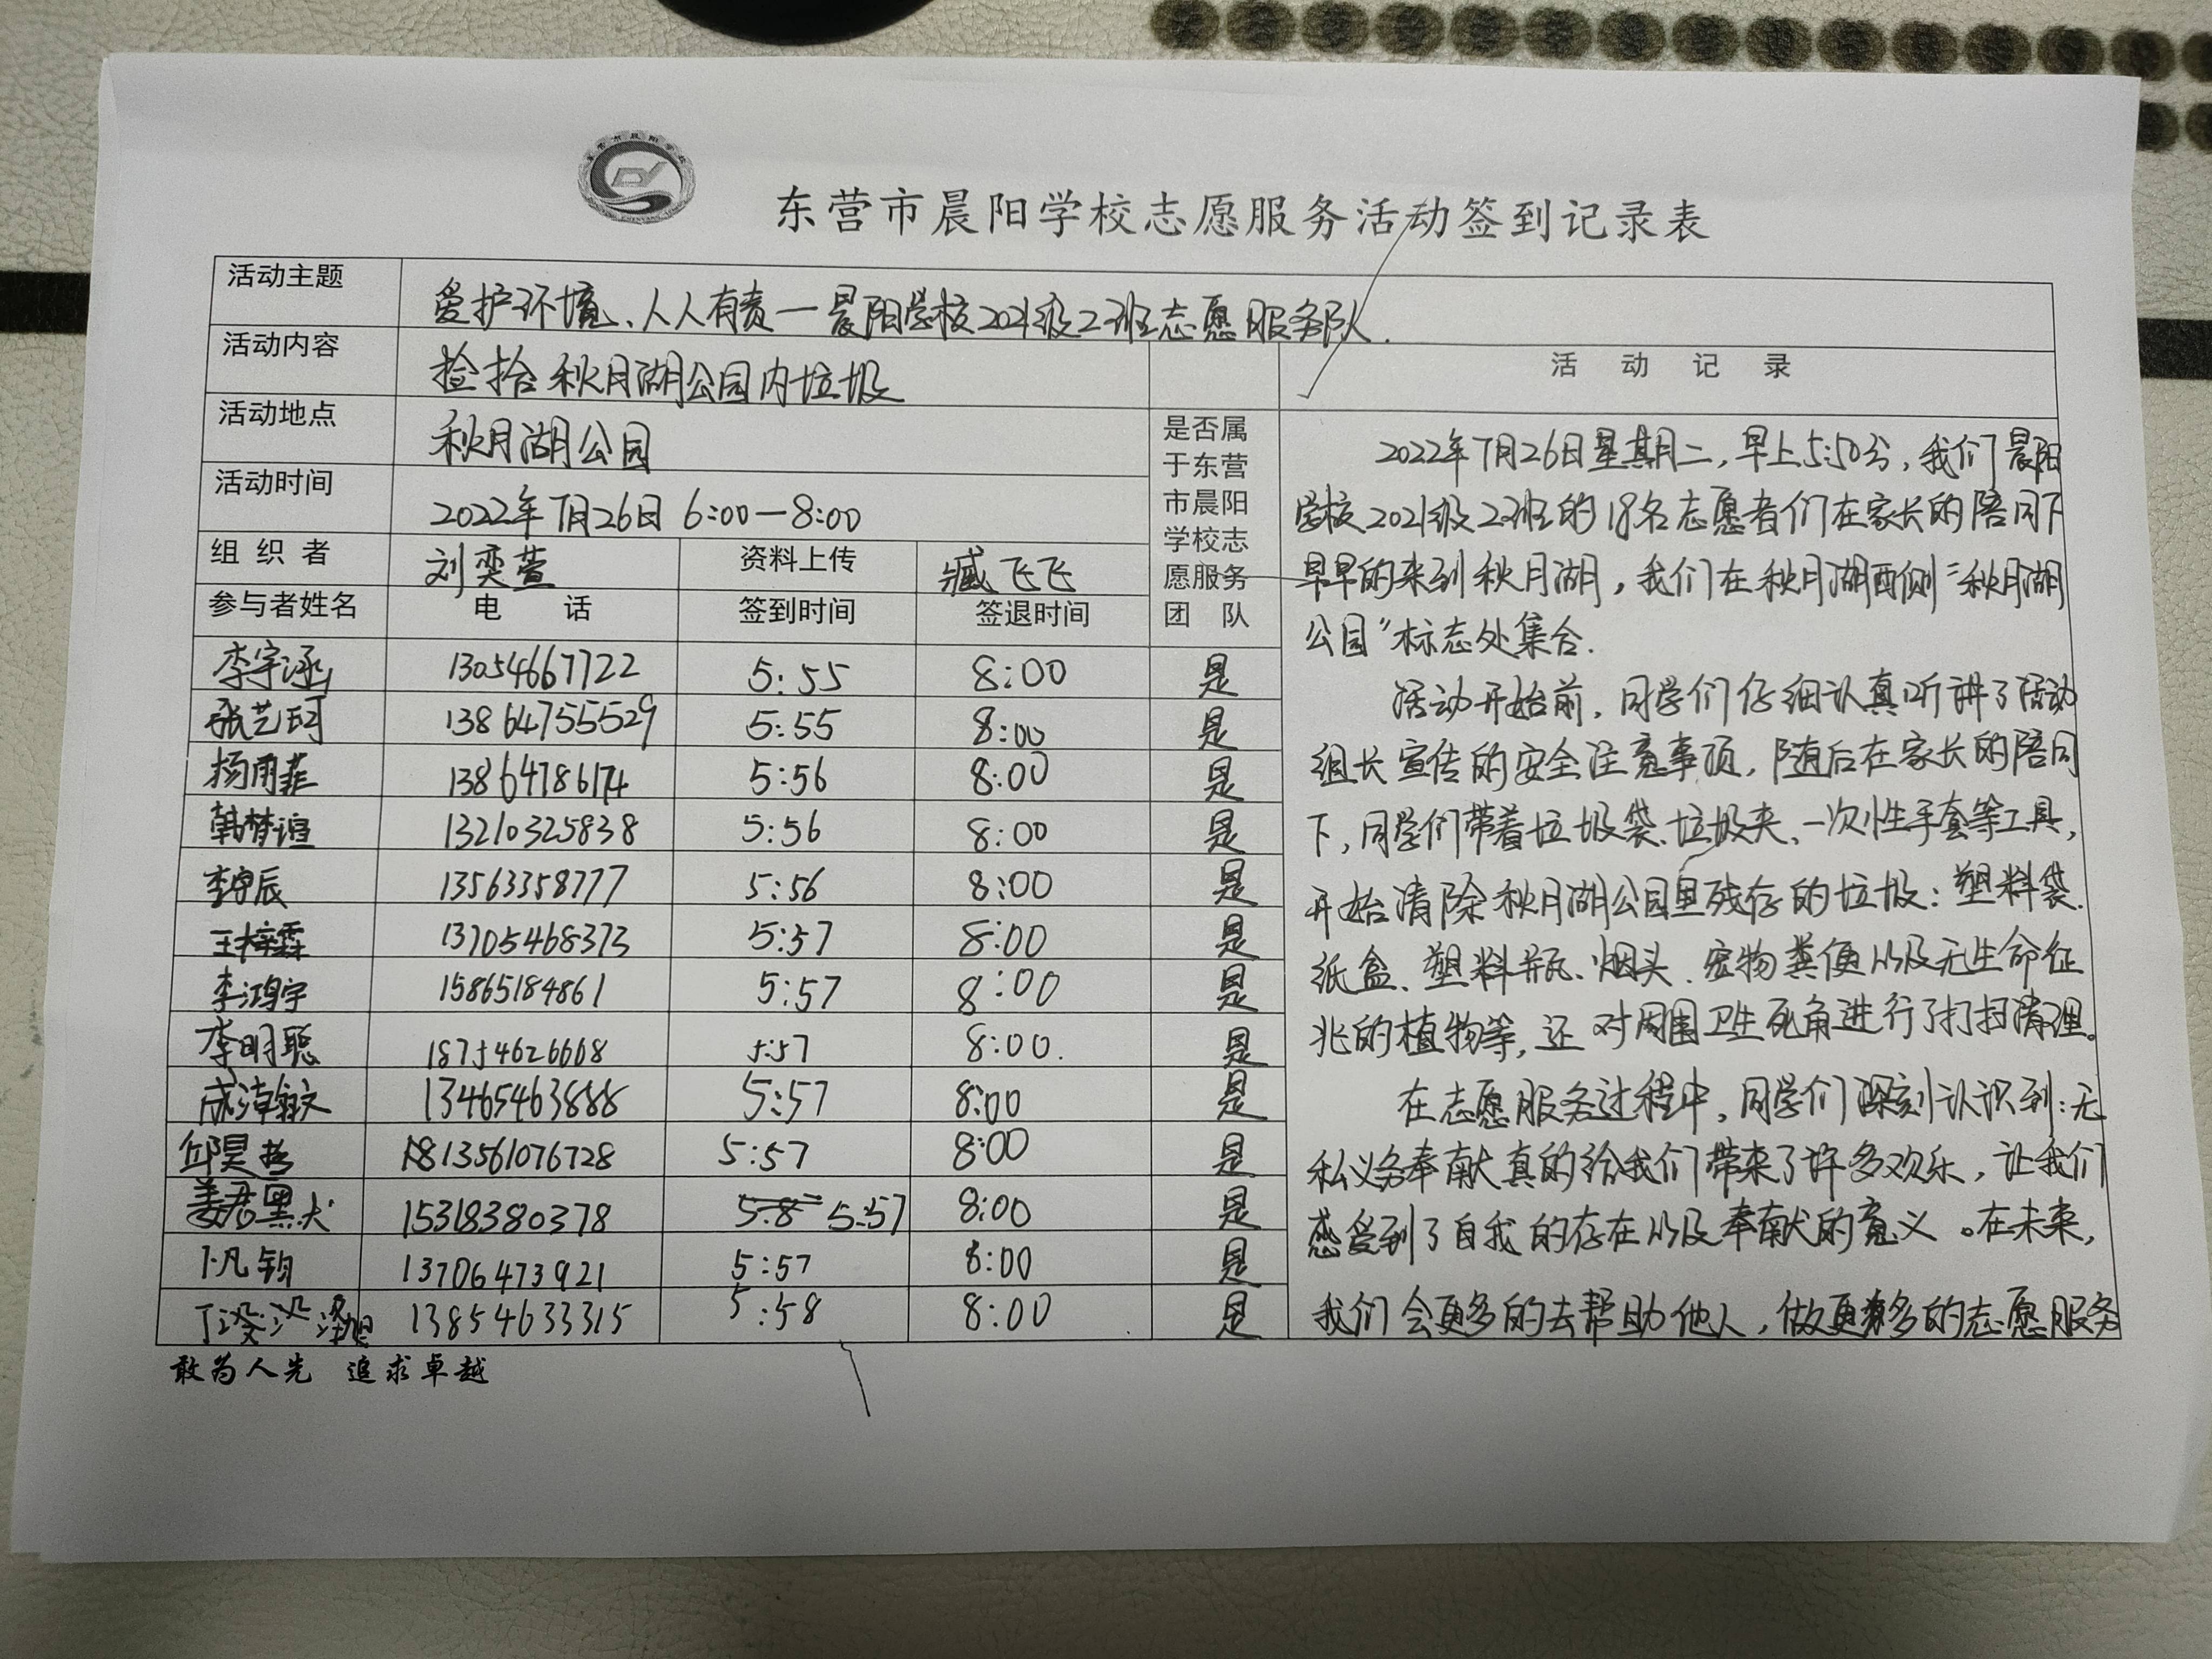 东营市晨阳学校志愿服务活动签到记录表
活动主题 爱护环境、人人有责—晨阳学校2021级22班志愿服务队.
活动内容 捡拾秋月湖公园内垃圾
活动地点 秋月湖公园
活动时间 2022年7月26日 6:00—8:00
组织者 刘奕萱 资料上传 臧飞飞
参与者姓名 电话 签到时间 签退时间
是否属
于东营
市晨阳
学校志
愿服务
团队
李宇涵 13054667722 5:55 8:00 是
张艺珂 13864755529 5:55 8:00 是
杨雨菲 13864786174 5:56 8:00 是
韩梦 13210325838 5:56 8:00 是
辰 13563358777 5:56 8:00 是
王梓霖 13705468373 5:57 8:00 是
李鸿宇 15865184861 5:57 8:00 是
李明聪 18754626668 5:57 8:00. 是
成 13465463888 5:57 8:00 是
邱昊 13561076728 5:57 8:00 是
姜君 15318380378 5:57 8:00 是
卜凡钧 13706473921 5:57 8:00 是
丁 13854633315 5:58 8:00 是
活动记录
2022年7月26日星期二,早上5:50分,我们晨阳
学校2021级22班的18名志愿者们在家长的陪同下
早早的来到秋月湖,我们在秋月湖西侧“秋月湖
公园”标志处集合.
活动开始前,同学们仔细认真听讲了活动
组长宣传的安全注意事项,随后在家长的陪同
下,同学们带着垃圾袋、垃圾夹、一次性手套等工具,
开始清除秋月湖公园里残存的垃圾:塑料袋、
纸盒、塑料瓶、烟头、宠物粪便以及无生命征
兆的植物等,还对周围卫生死角进行了打扫清理。
在志愿服务过程中,同学们深刻认识到:无
私义务奉献真的给我们带来了许多欢乐,让我们
感受到了自我的存在以及奉献的意义。在未来,
我们会更多的去帮助他人,做更多的志愿服务
敢为人先 追求卓越